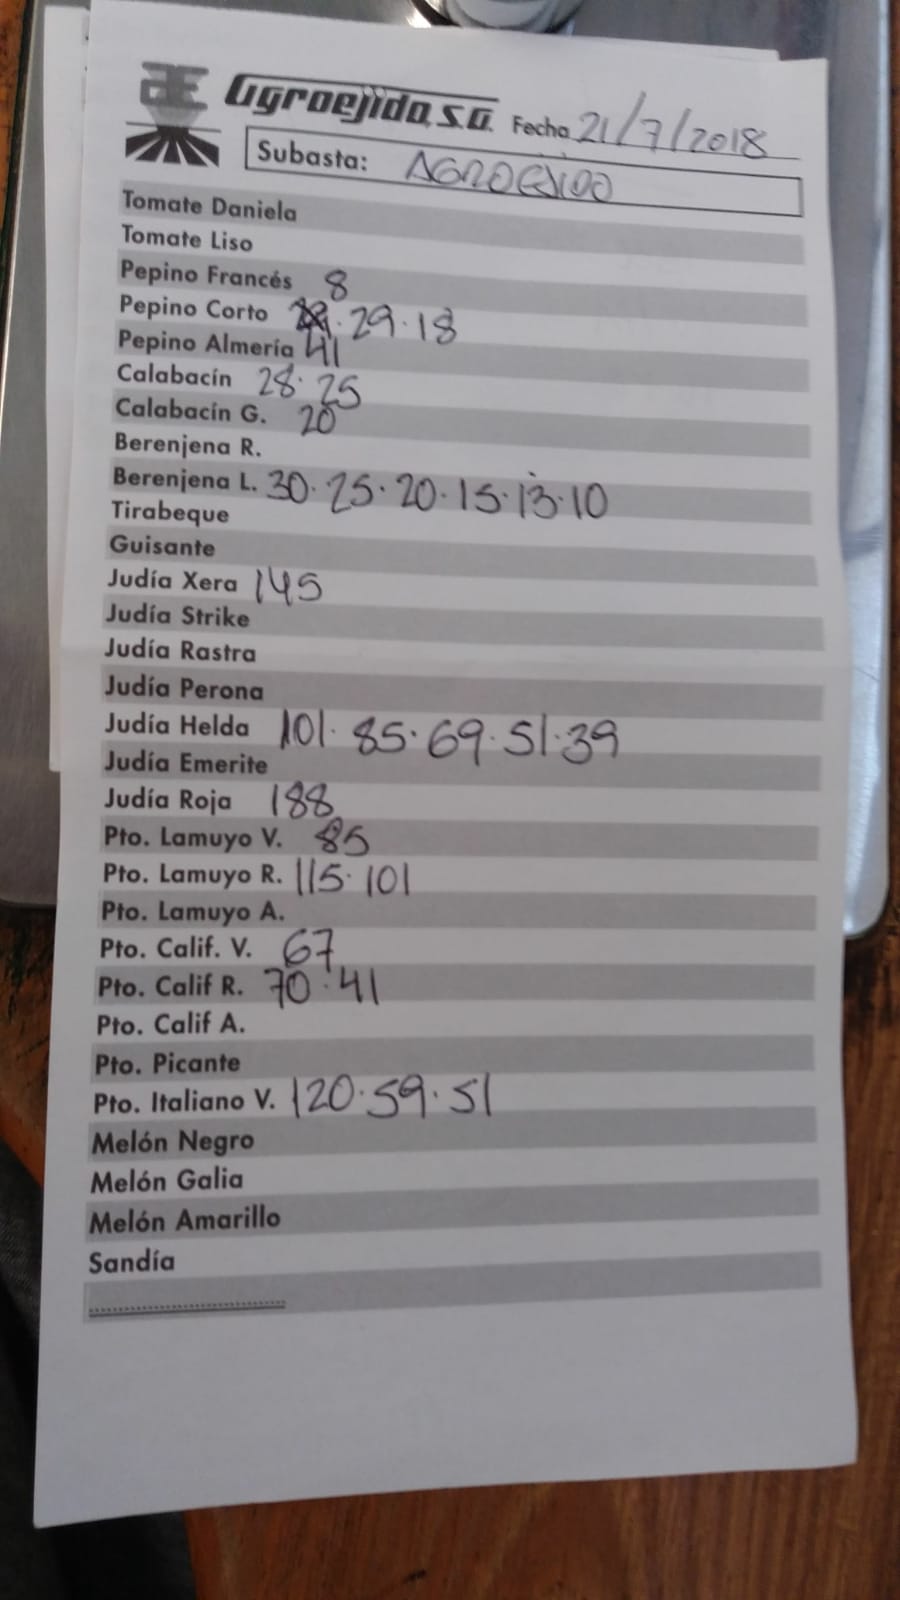 Agroejido, S.A. Fecha 21/7/2018
Subasta: AGROEJIDO
Tomate Daniela
Tomate Liso
Pepino Francés 8
Pepino Corto 29·18
Pepino Almería 41
Calabacín 28·25
Calabacín G. 20
Berenjena R.
Berenjena L. 30·25·20·15·13·10
Tirabeque
Guisante
Judía Xera 145
Judía Strike
Judía Rastra
Judía Perona
Judía Helda 101·85·69·51·39
Judía Emerite
Judía Roja 188
Pto. Lamuyo V. 85
Pto. Lamuyo R. 115·101
Pto. Lamuyo A.
Pto. Calif. V. 67
Pto. Calif R. 70·41
Pto. Calif A.
Pto. Picante
Pto. Italiano V. 120·59·51
Melón Negro
Melón Galia
Melón Amarillo
Sandía